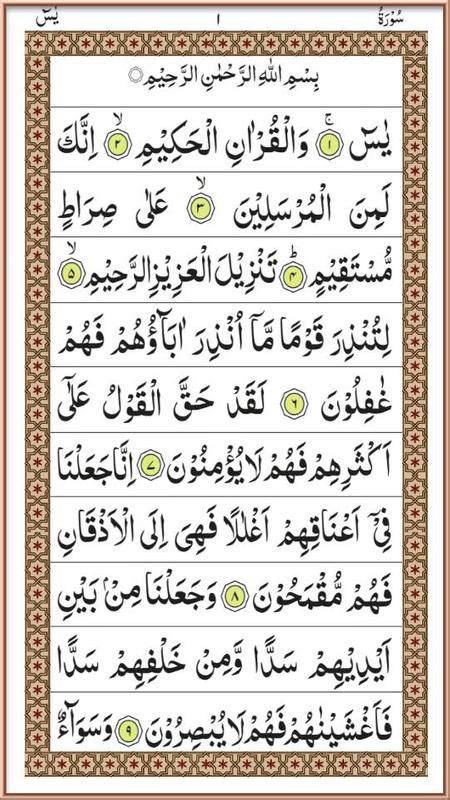 سُوْرَةُ ١ يٰسٓ
بِسْمِ اللّٰهِ الرَّحْمٰنِ الرَّحِيْمِ
يٰسٓ ۚ﴿١﴾ وَالْقُرْاٰنِ الْحَكِيْمِ ۙ﴿٢﴾ اِنَّكَ
لَمِنَ الْمُرْسَلِيْنَ ۙ﴿٣﴾ عَلٰى صِرَاطٍ
مُّسْتَقِيْمٍ ؕ﴿٤﴾ تَنْزِيْلَ الْعَزِيْزِ الرَّحِيْمِ ۙ﴿٥﴾
لِتُنْذِرَ قَوْمًا مَّاۤ اُنْذِرَ اٰبَآؤُهُمْ فَهُمْ
غٰفِلُوْنَ ﴿٦﴾ لَقَدْ حَقَّ الْقَوْلُ عَلٰٓى
اَكْثَرِهِمْ فَهُمْ لَا يُؤْمِنُوْنَ ﴿٧﴾ اِنَّا جَعَلْنَا
فِيْۤ اَعْنَاقِهِمْ اَغْلٰلًا فَهِىَ اِلَى الْاَذْقَانِ
فَهُمْ مُّقْمَحُوْنَ ﴿٨﴾ وَجَعَلْنَا مِنْۢ بَيْنِ
اَيْدِيْهِمْ سَدًّا وَّمِنْ خَلْفِهِمْ سَدًّا
فَاَغْشَيْنٰهُمْ فَهُمْ لَا يُبْصِرُوْنَ ﴿٩﴾ وَسَوَآءٌ